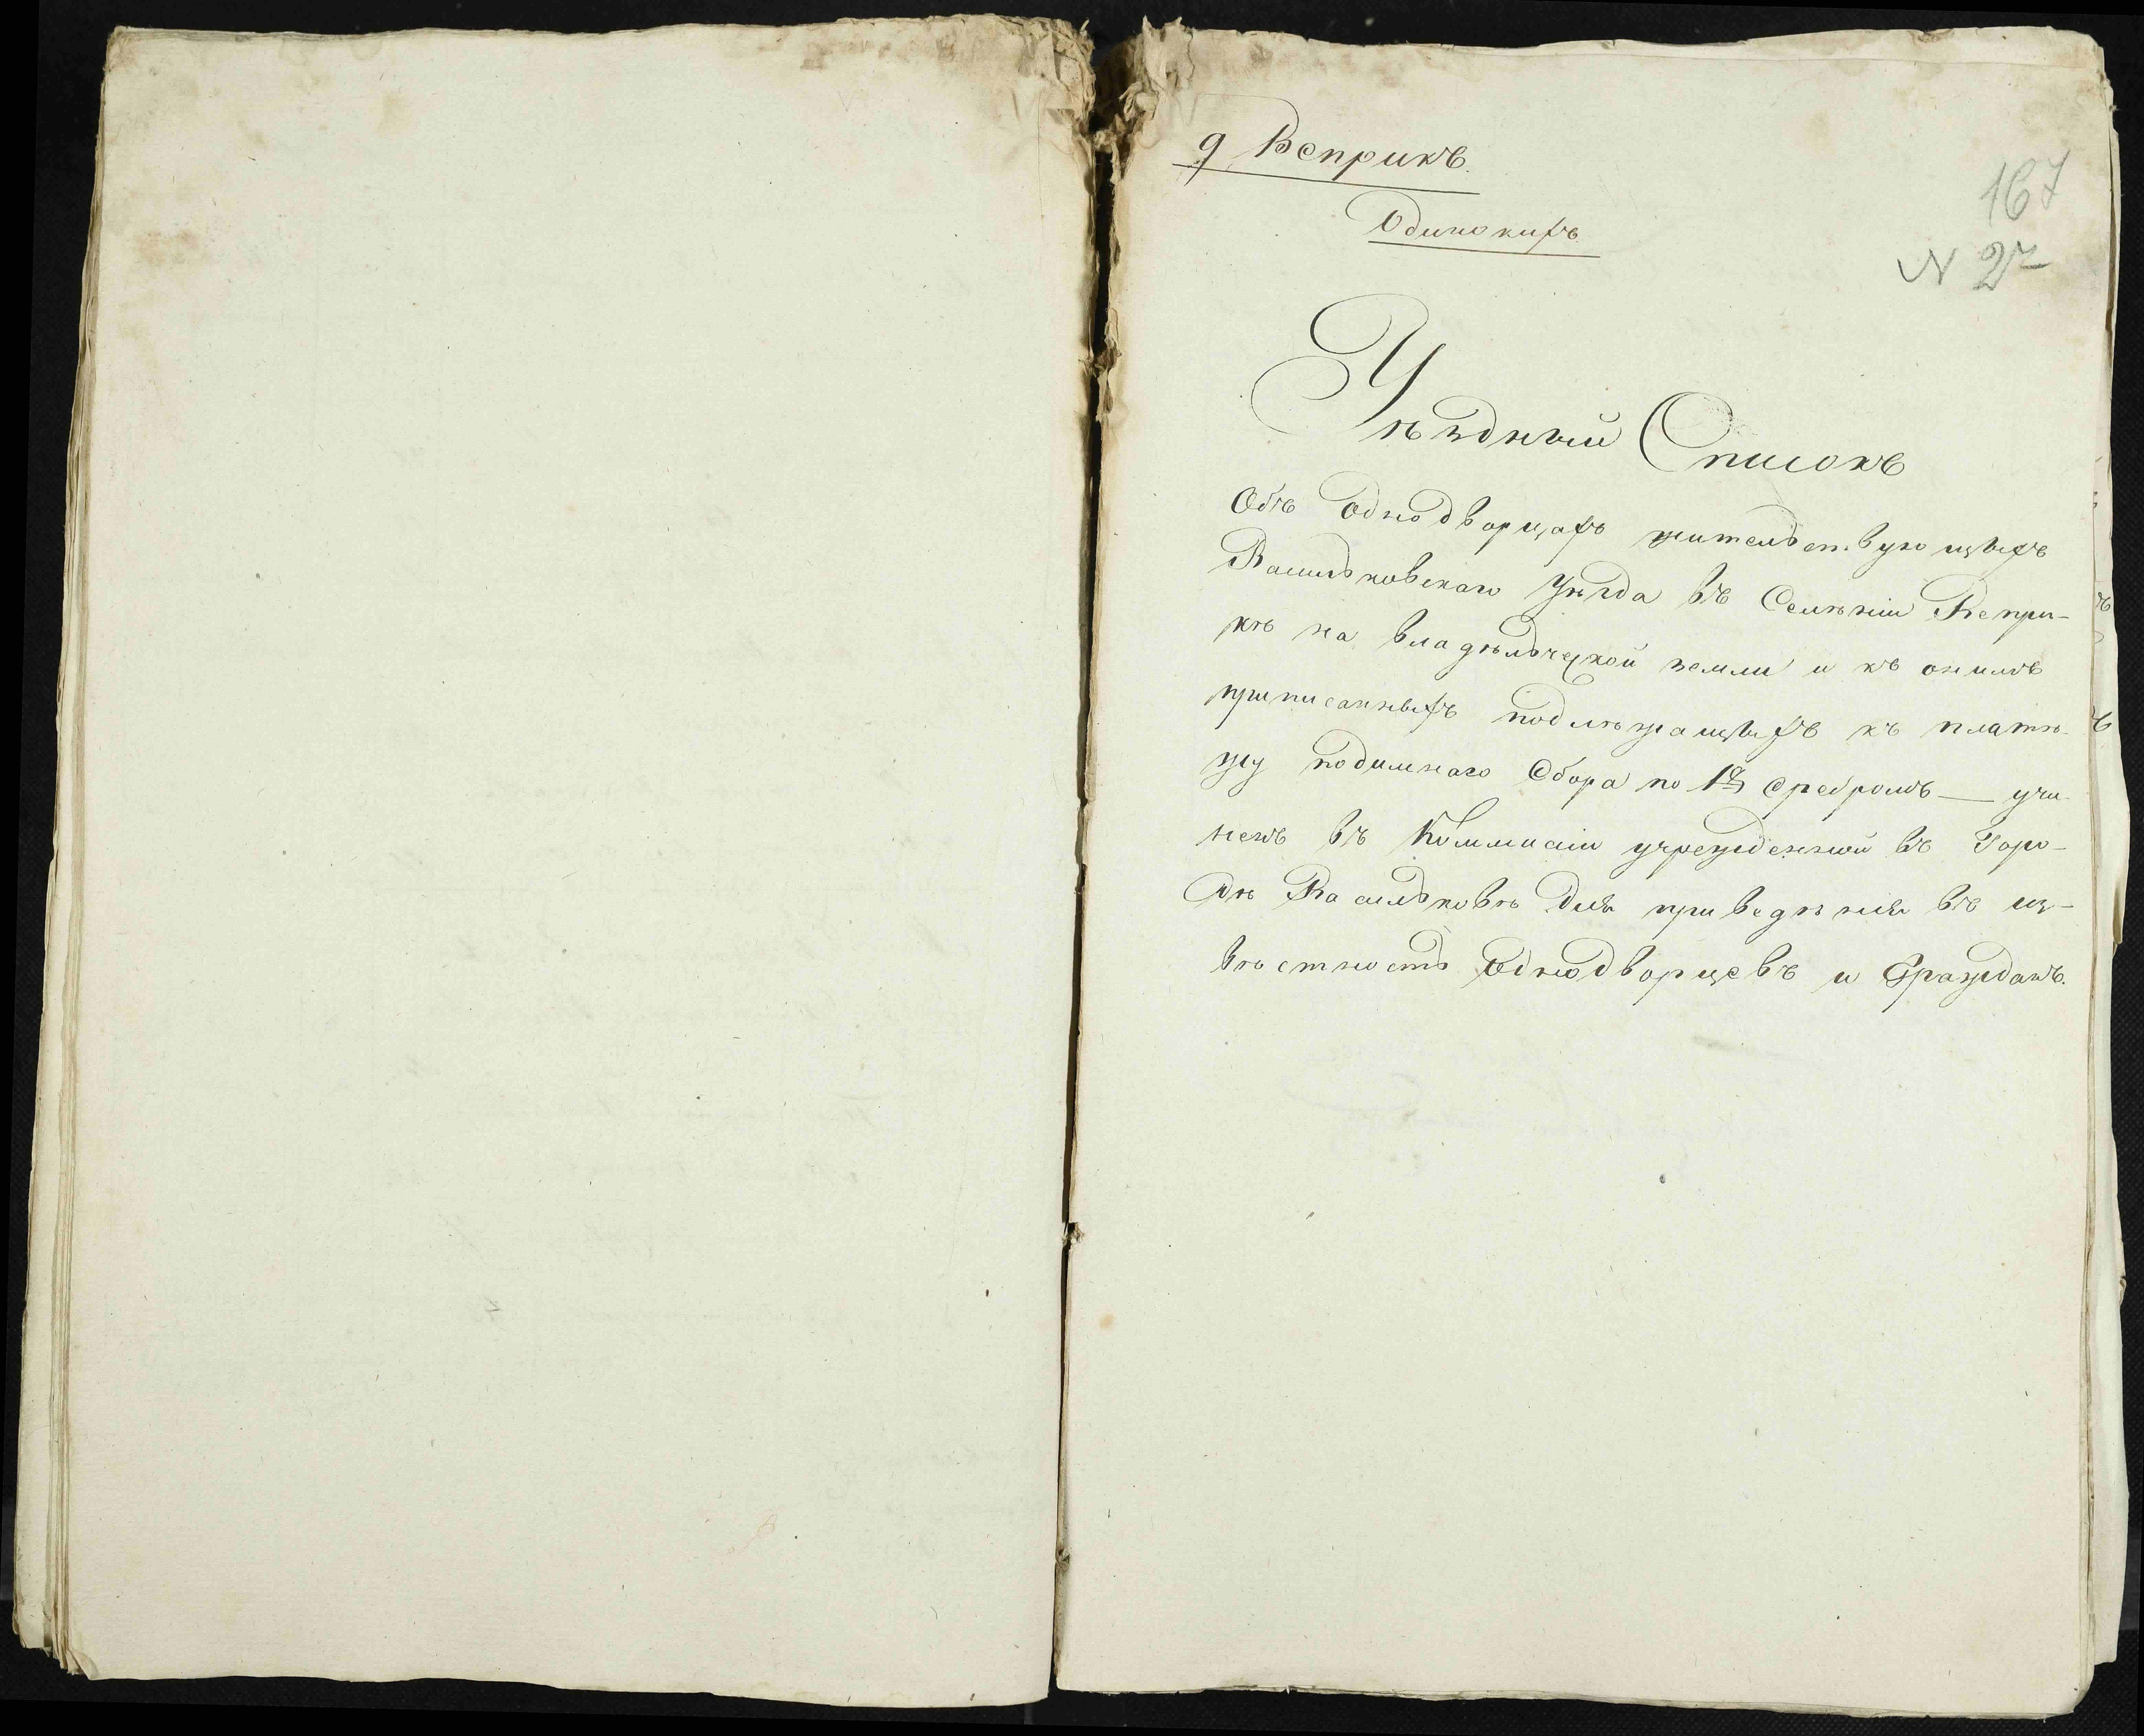 9 Веприкъ.
Одинокихъ
167
N 27
Уѣздный Списокъ
Объ Однодворцахъ жительствующихъ
Васильковскаго Уѣзда въ Селѣніи Вепри-
кѣ на владѣльческой земли и къ онимъ
приписанныхъ подлѣжащихъ къ платѣ-
жу подимнаго Сбора по 1 сребромъ — учи-
ненъ въ Коммисіи учрежденной въ Горо-
дѣ Васильковѣ для приведѣнія въ из-
вѣстность Однодворцевъ и Гражданъ.